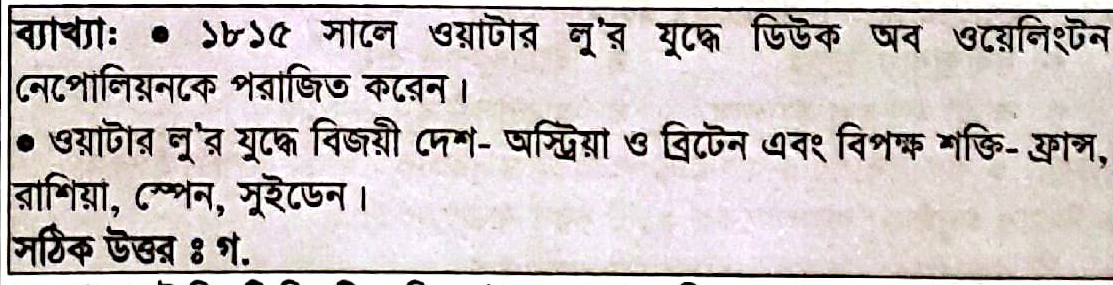 ব্যাখ্যা: ● ১৮১৫ সালে ওয়াটার লু'র যুদ্ধে ডিউক অব ওয়েলিংটন
নেপোলিয়নকে পরাজিত করেন।
● ওয়াটার লু'র যুদ্ধে বিজয়ী দেশ- অস্ট্রিয়া ও ব্রিটেন এবং বিপক্ষ শক্তি- ফ্রান্স,
রাশিয়া, স্পেন, সুইডেন।
সঠিক উত্তর ঃ গ.